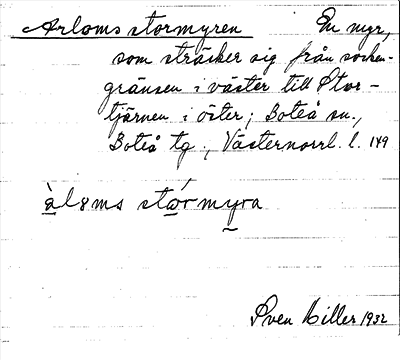 Arloms stormyren En myr,
som sträcker sig från socken-
gränsen i väster till Stor-
tjärnen i öster; Boteå sn.,
Boteå tg., Västernorrl. l. 149
àlɘms stórmyra
Sven Hiller 1932